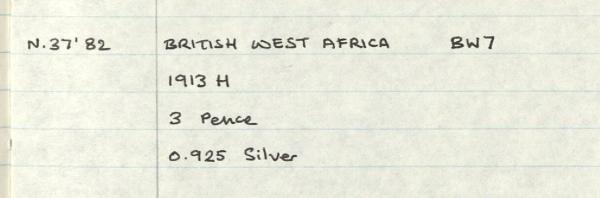 N.37'82 BRITISH WEST AFRICA BW7
1913 H
3 Pence
0.925 Silver